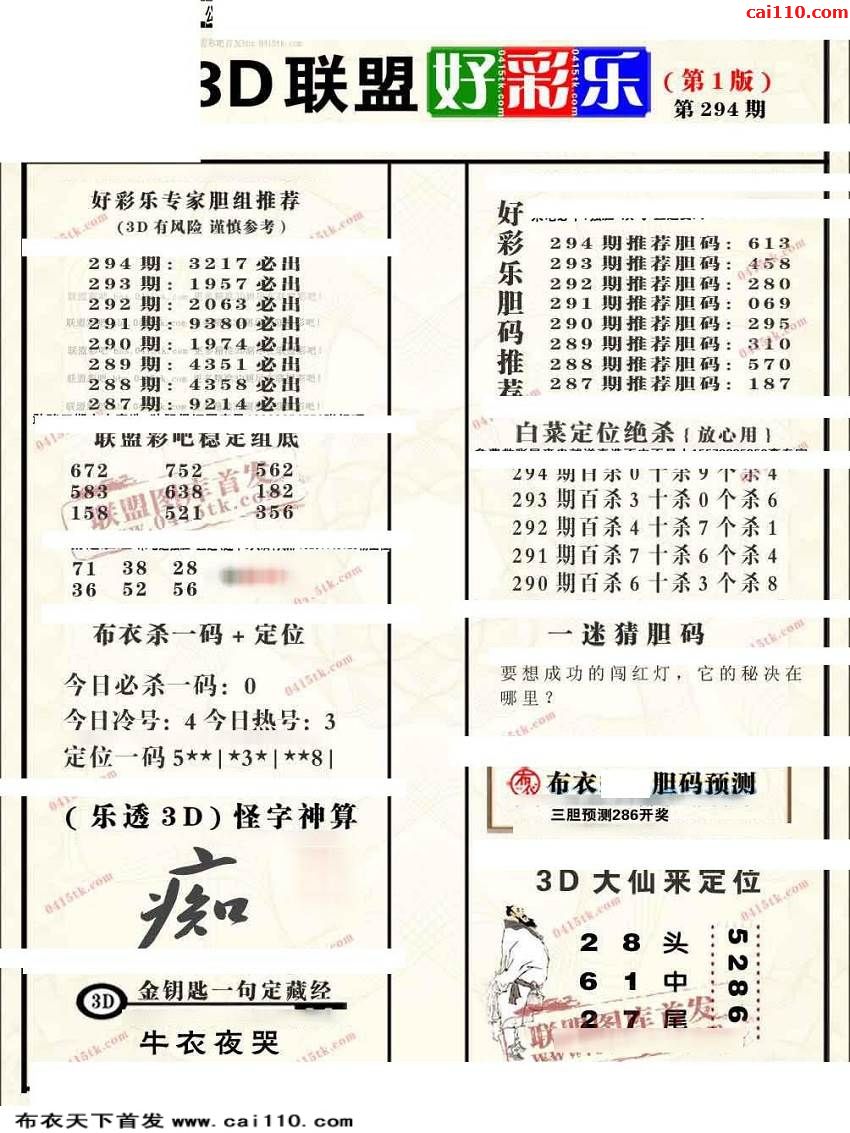 cai110.com
3D 联盟 好彩乐 (第1版)
第 294 期
好彩乐专家胆组推荐
(3D 有风险 谨慎参考)
294 期: 3217 必出
293 期: 1957 必出
292 期: 2063 必出
291 期: 9380 必出
290 期: 1974 必出
289 期: 4351 必出
288 期: 4358 必出
287 期: 9214 必出
联盟彩吧稳定组底
672 752 562
583 638 182
158 521 356
71 38 28
36 52 56
布衣杀一码 + 定位
今日必杀一码: 0
今日冷号: 4 今日热号: 3
定位一码 5**|*3*|**8|
(乐透 3D) 怪字神算
痴
3D 金钥匙一句定藏经
牛衣夜哭
好彩乐胆码推荐
294 期推荐胆码: 613
293 期推荐胆码: 458
292 期推荐胆码: 280
291 期推荐胆码: 069
290 期推荐胆码: 295
289 期推荐胆码: 310
288 期推荐胆码: 570
287 期推荐胆码: 187
白菜定位绝杀 {放心用}
294 期百杀 0 十杀 9 个杀 4
293 期百杀 3 十杀 0 个杀 6
292 期百杀 4 十杀 7 个杀 1
291 期百杀 7 十杀 6 个杀 4
290 期百杀 6 十杀 3 个杀 8
一迷猜胆码
要想成功的闯红灯，它的秘决在
哪里？
布衣 胆码预测
三胆预测286开奖
3D 大仙来定位
2 8 头
6 1 中
2 7 尾
5286
联盟图库首发
0415tk.com
布衣天下首发 www.cai110.com